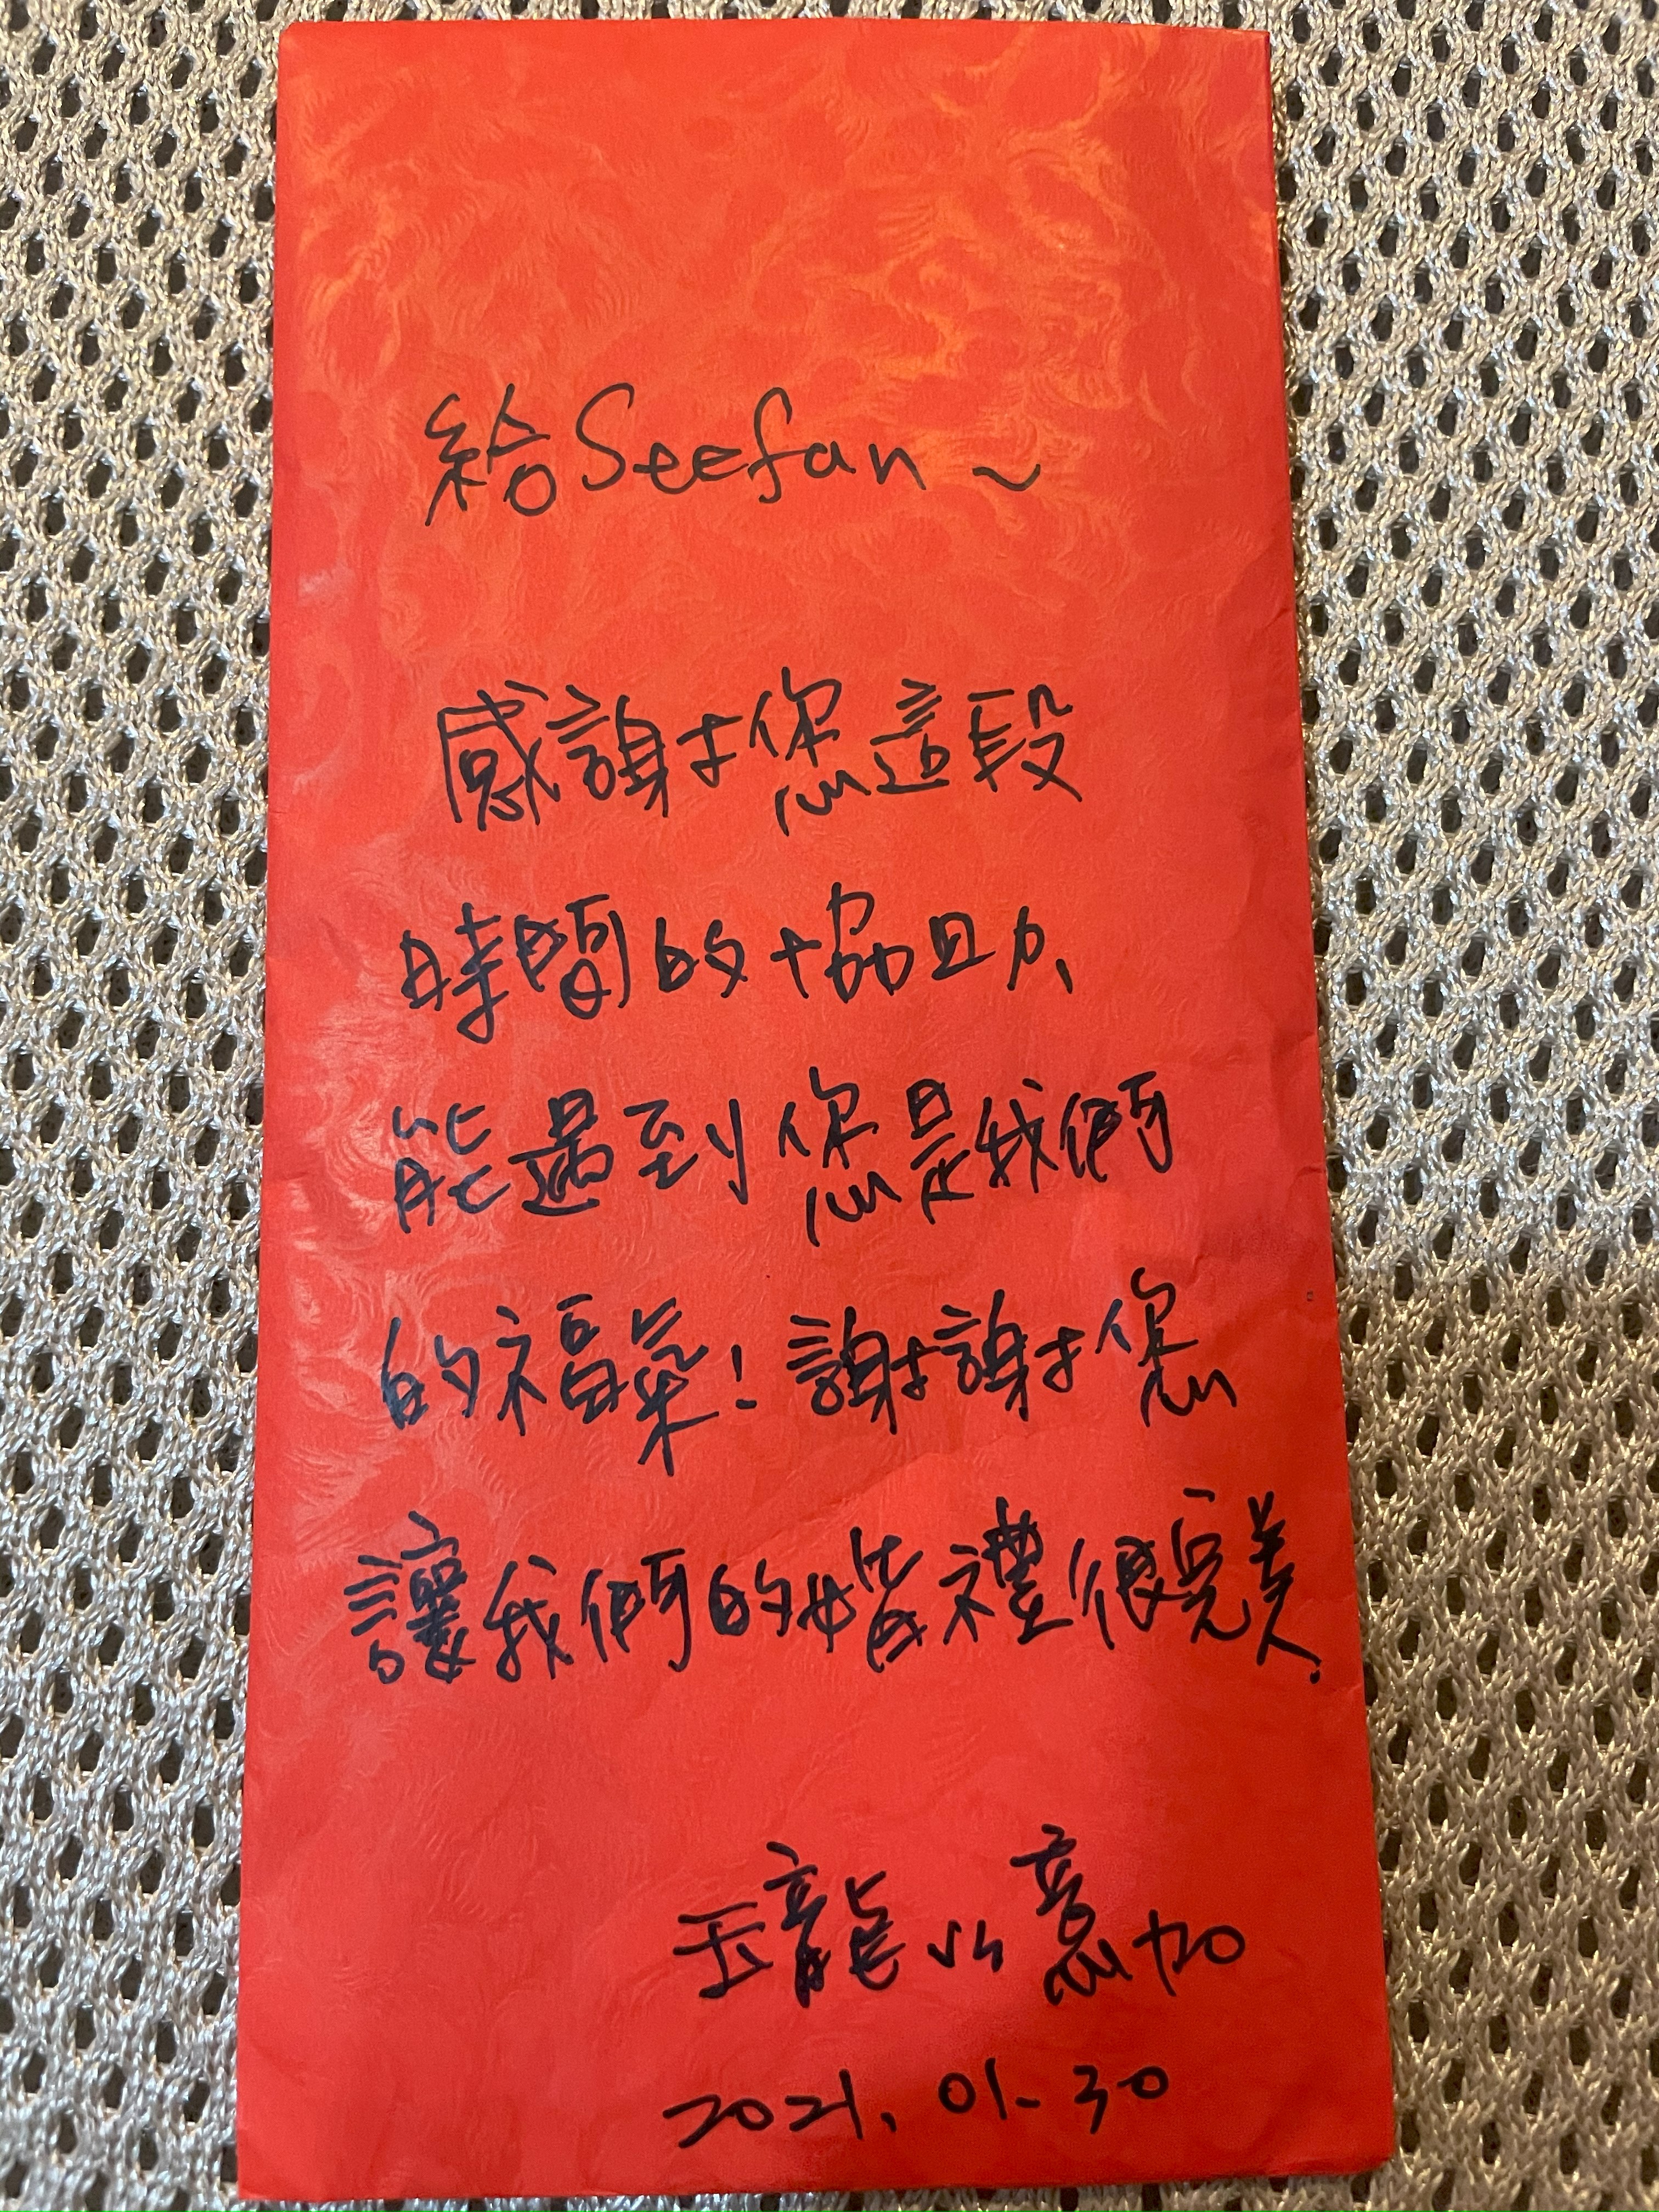 給Seefan~
感謝您這段
時間的協助、
能遇到您是我們
的福氣!謝謝您
讓我們的婚禮很完美.
玉龍&意加
2021.01.30